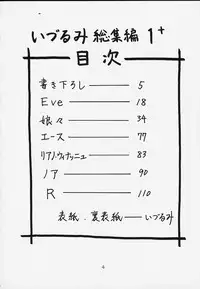 いづるみ 総集編 1+
目次
書き下ろし — 5
Eve — 18
娘々 — 34
エース — 77
リアノヴィナッニュ — 83
ノア — 90
R — 110
表紙.裏表紙 — いづるみ